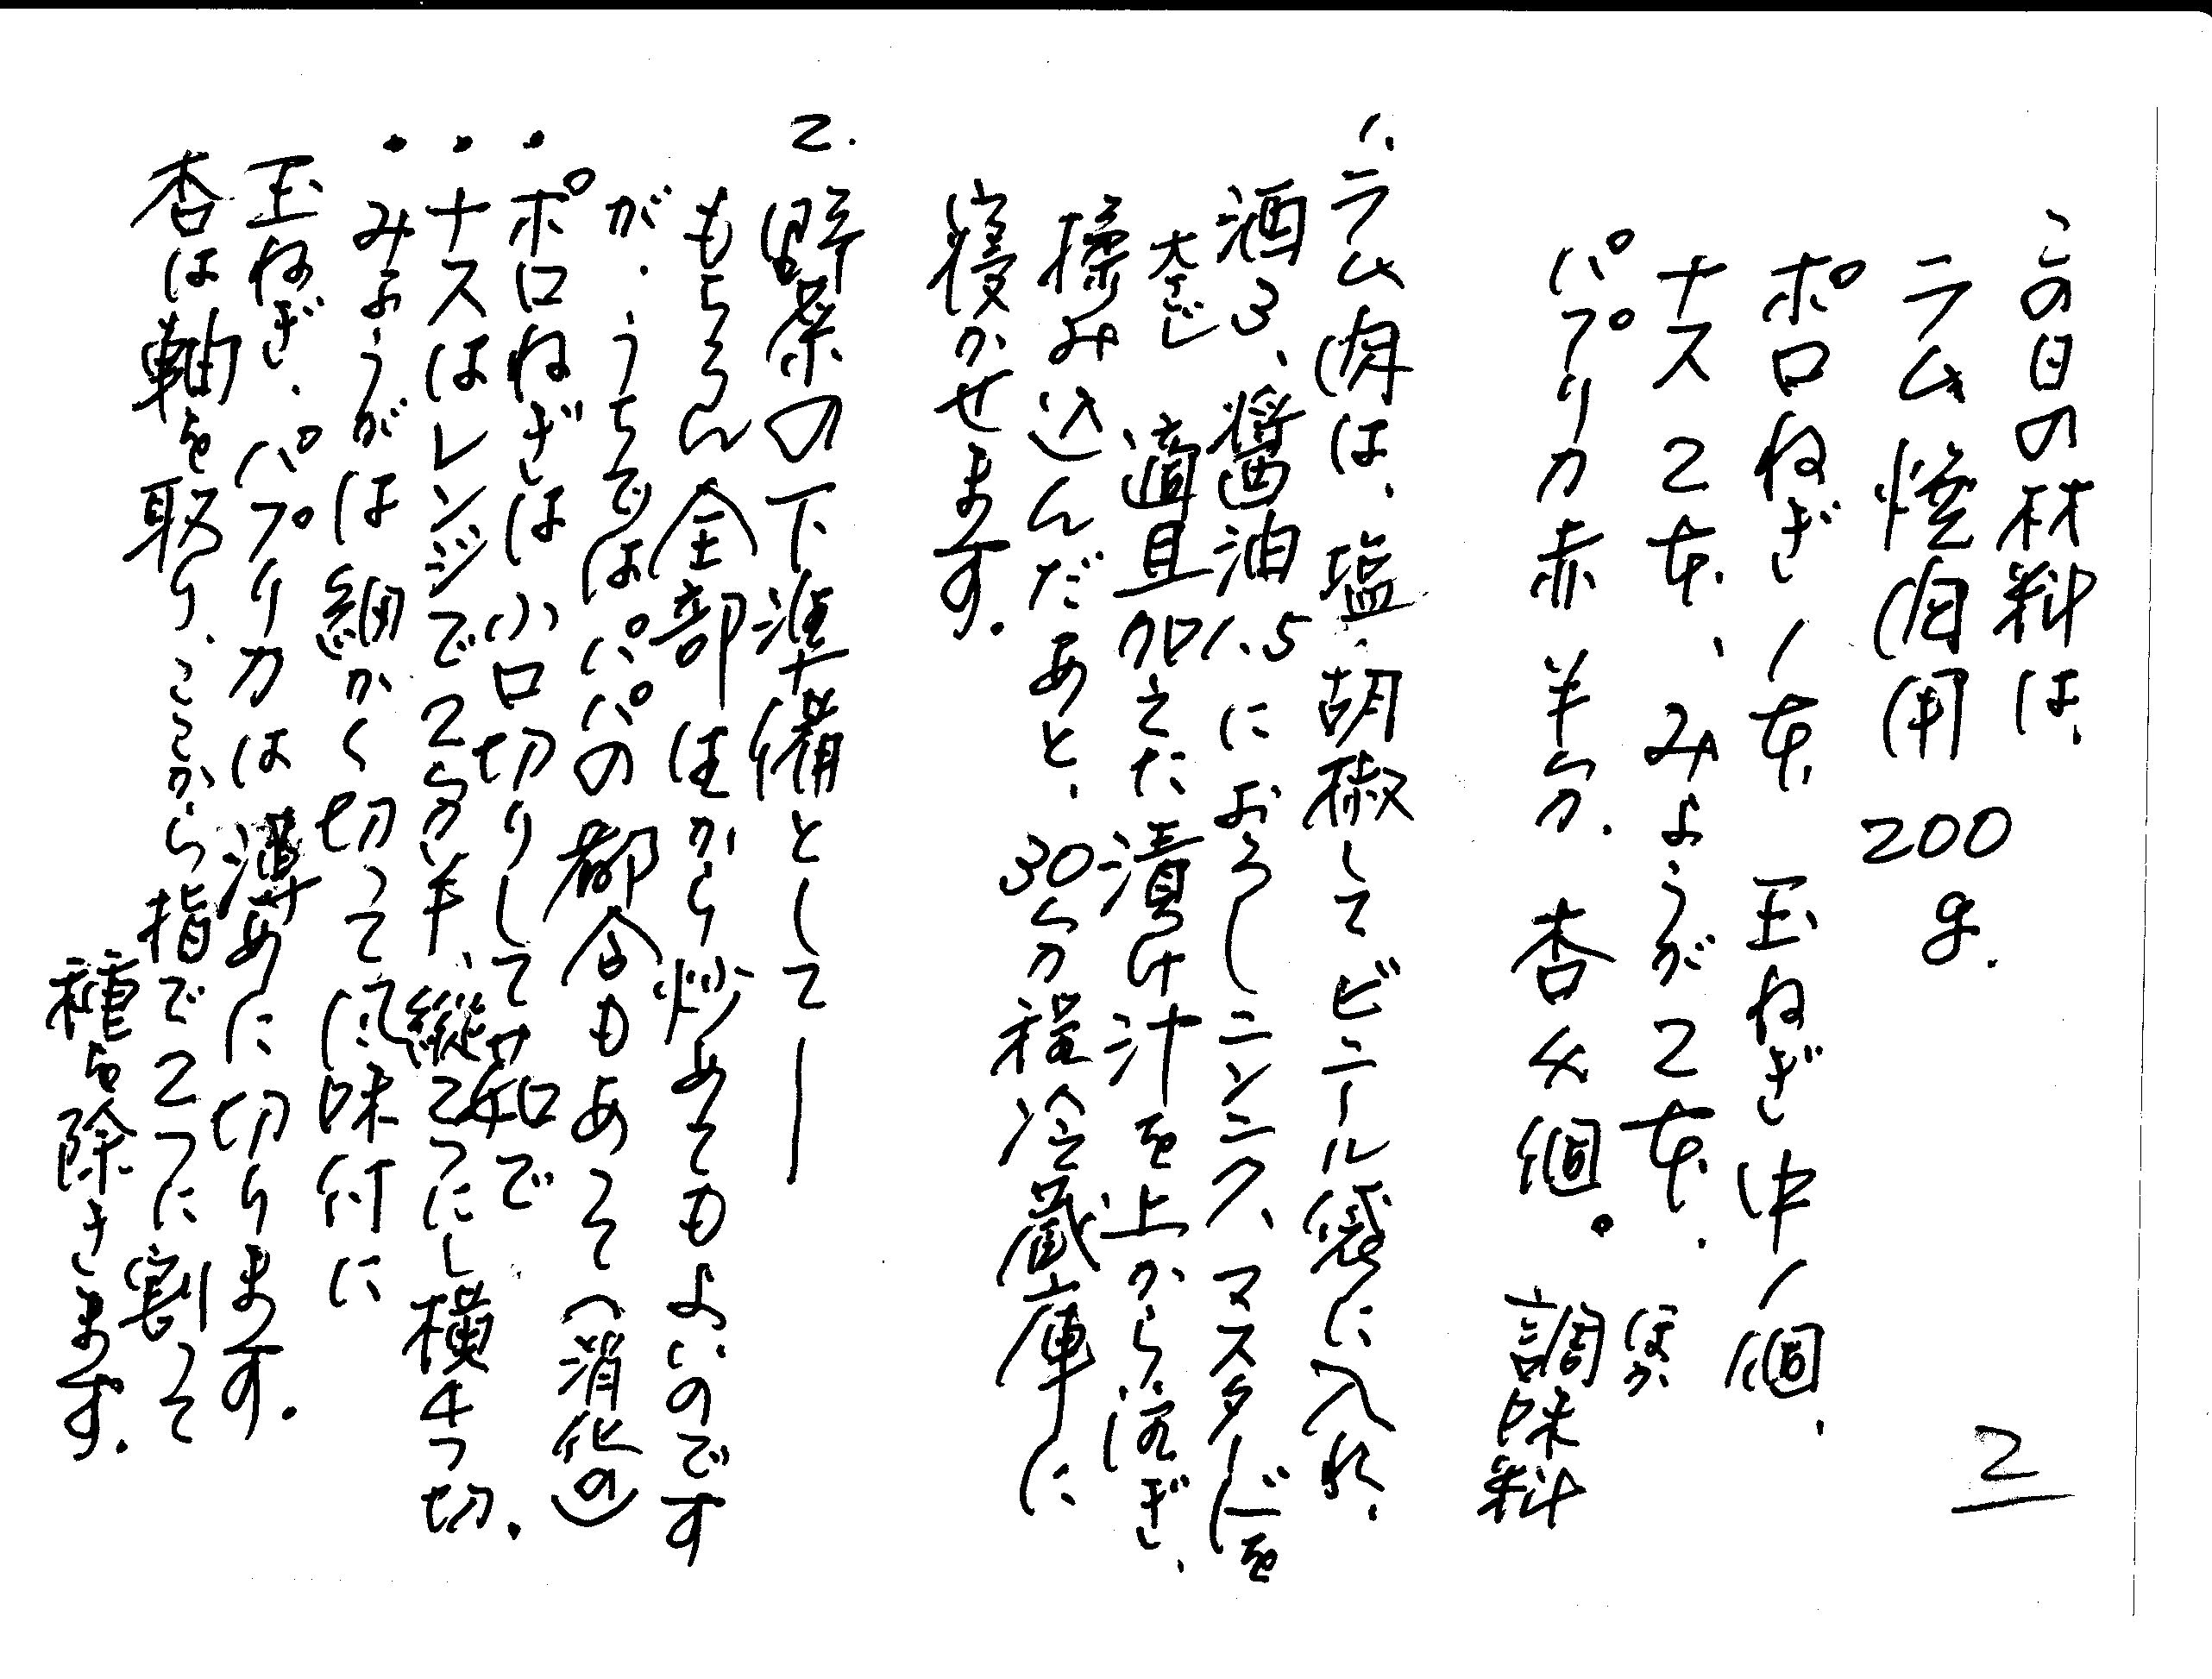 2
この日の材料は、
ラム焼肉用 200g.
ポロねぎ1本 玉ねぎ中1個、
ナス2本、みょうが2本.
パプリカ赤半分. 杏4個。ほか調味料
1. ラム肉は、塩・胡椒してビニール袋に入れ、
酒3、醤油1.5におろしニンニク、マスタードを
大さじ 適宜加えた漬け汁を上から注ぎ、
揉み込んだあと、30分程冷蔵庫に
寝かせます。
2. 野菜の下準備として―
もちろん全部生から炒めてもよいのです
が、うちではパパの都合もあって(消化の)
・ポロねぎは小口切りしてで
・ナスはレンジで2分半、縦2つにし横4つ切.
・みょうがは細かく切って風味付に
玉ねぎ、パプリカは薄めに切ります。
杏は軸を取り、ここから指で2つに割って
種を除きます。